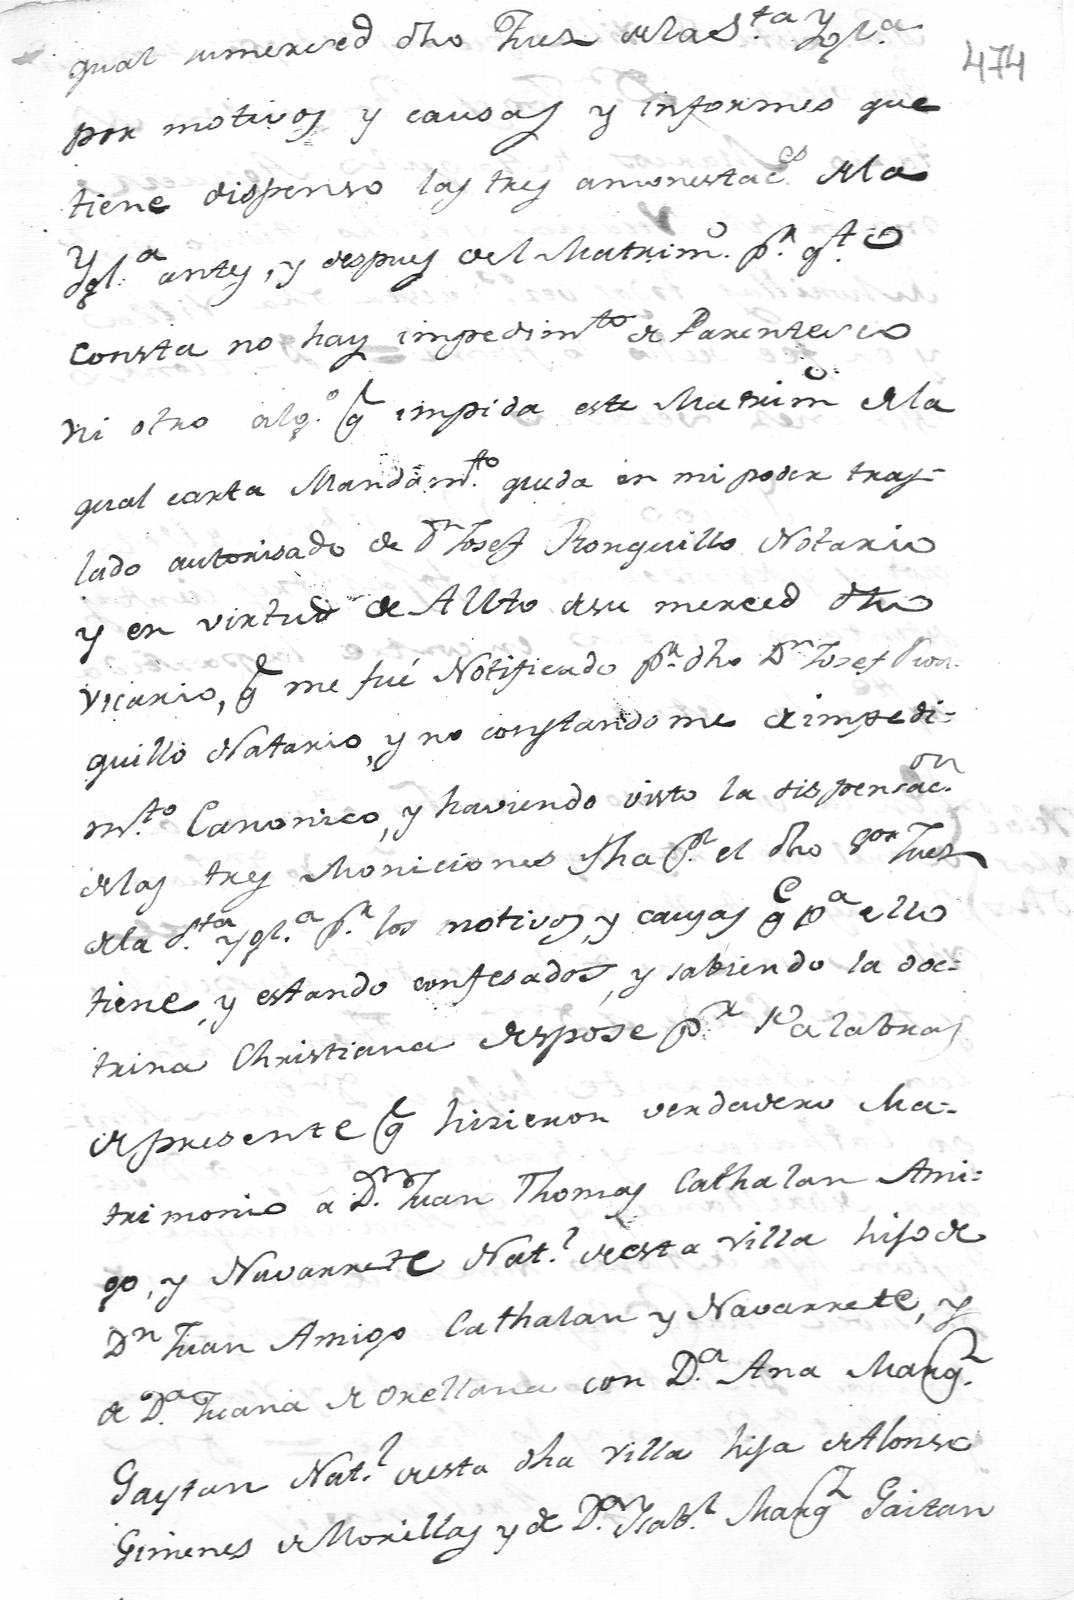 474
qual sumerced dho Juez dela S.ta Ygl.a
por motivos y causas y informes que
tiene dispenso las tres amonestac.es dela
Ygl.a antes, y despues del Matrim.o p.r q.to
consta no hay impedim.to de Parentesco
ni otro alg.o q̃ impida este Matrim.o dela
qual carta Mandam.to queda en mi poder tras-
lado autorisado de D.n Josef Ronquillo Notario
y en virtud de AUto desu merced dho
Vicario, q̃ me fué Notificado p.r dho D.n Josef Ron-
quillo Notario, y no constandome de impedi-
m.to Canonico, y haviendo visto la dispensac.on
delas tres Moniciones fha p.r el dho S.or Juez
dela S.ta ygl.a p.r los motivos, y causas q̃ p.a ello
tiene, y estando confesados, y sabiendo la doc-
trina Christiana despose p.r Palabras
depresente q̃ hisieron verdadero Ma-
trimonio a D.n Juan Thomas Cathalan Ami-
go, y Navarrete Nat.l desta Villa hijo de
D.n Juan Amigo Cathalan y Navarrete, y
de D.a Juana de Orellana con D.a Ana Marq.z
Gaytan Nat.l desta dha Villa hija de Alonso
Gimenes de Morillas y de D.a Isab.l Marq.z Gaitan